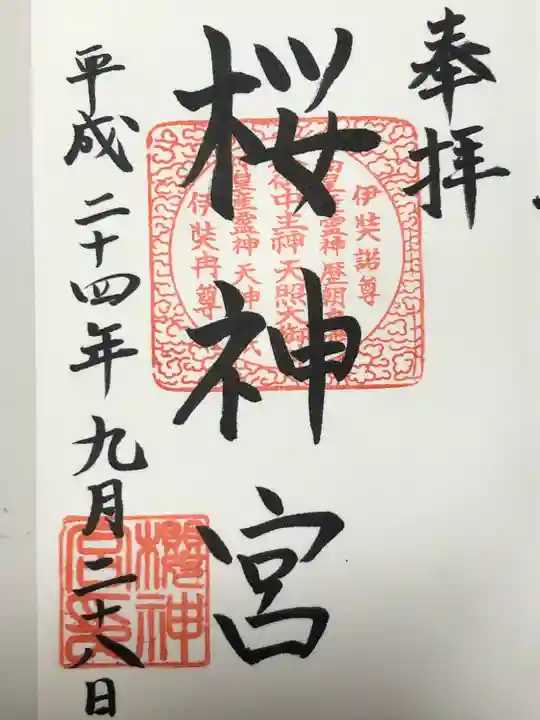 奉拝
桜神宮
伊奘諾尊
皇産霊神 歴朝
中主神 天照大御
皇産霊神 天神
伊奘冉尊
櫻神
宮
平成二十四年九月二十八日